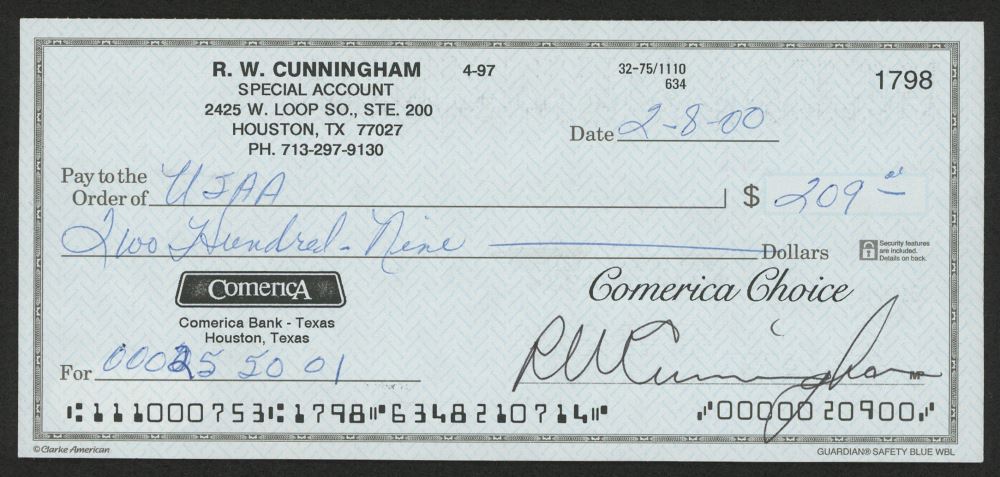 R. W. CUNNINGHAM 4-97 32-75/1110 1798
SPECIAL ACCOUNT 634
2425 W. LOOP SO., STE. 200
HOUSTON, TX 77027 Date 2-8-00
PH. 713-297-9130
Pay to the
Order of USAA $ 209
Two Hundred - Nine Dollars
Security features
are included.
Details on back.
ComericA Comerica Choice
Comerica Bank - Texas
Houston, Texas
For 00025 50 01 RWCunningham MP
⑆111000753⑆1798⑈6348210714⑈ ⑈0000020900⑈
© Clarke American GUARDIAN® SAFETY BLUE WBL